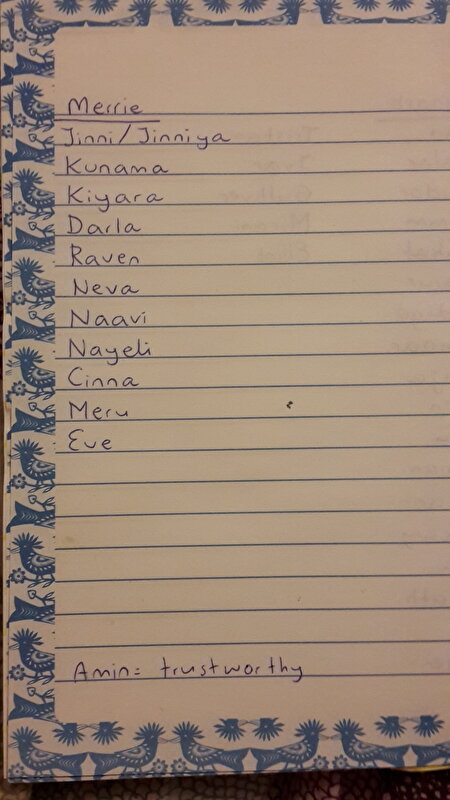 Merrie
Jinni/Jinniya
Kunama
Kiyara
Darla
Raven
Neva
Naavi
Nayeli
Cinna
Meru
Eve
Amin= trustworthy